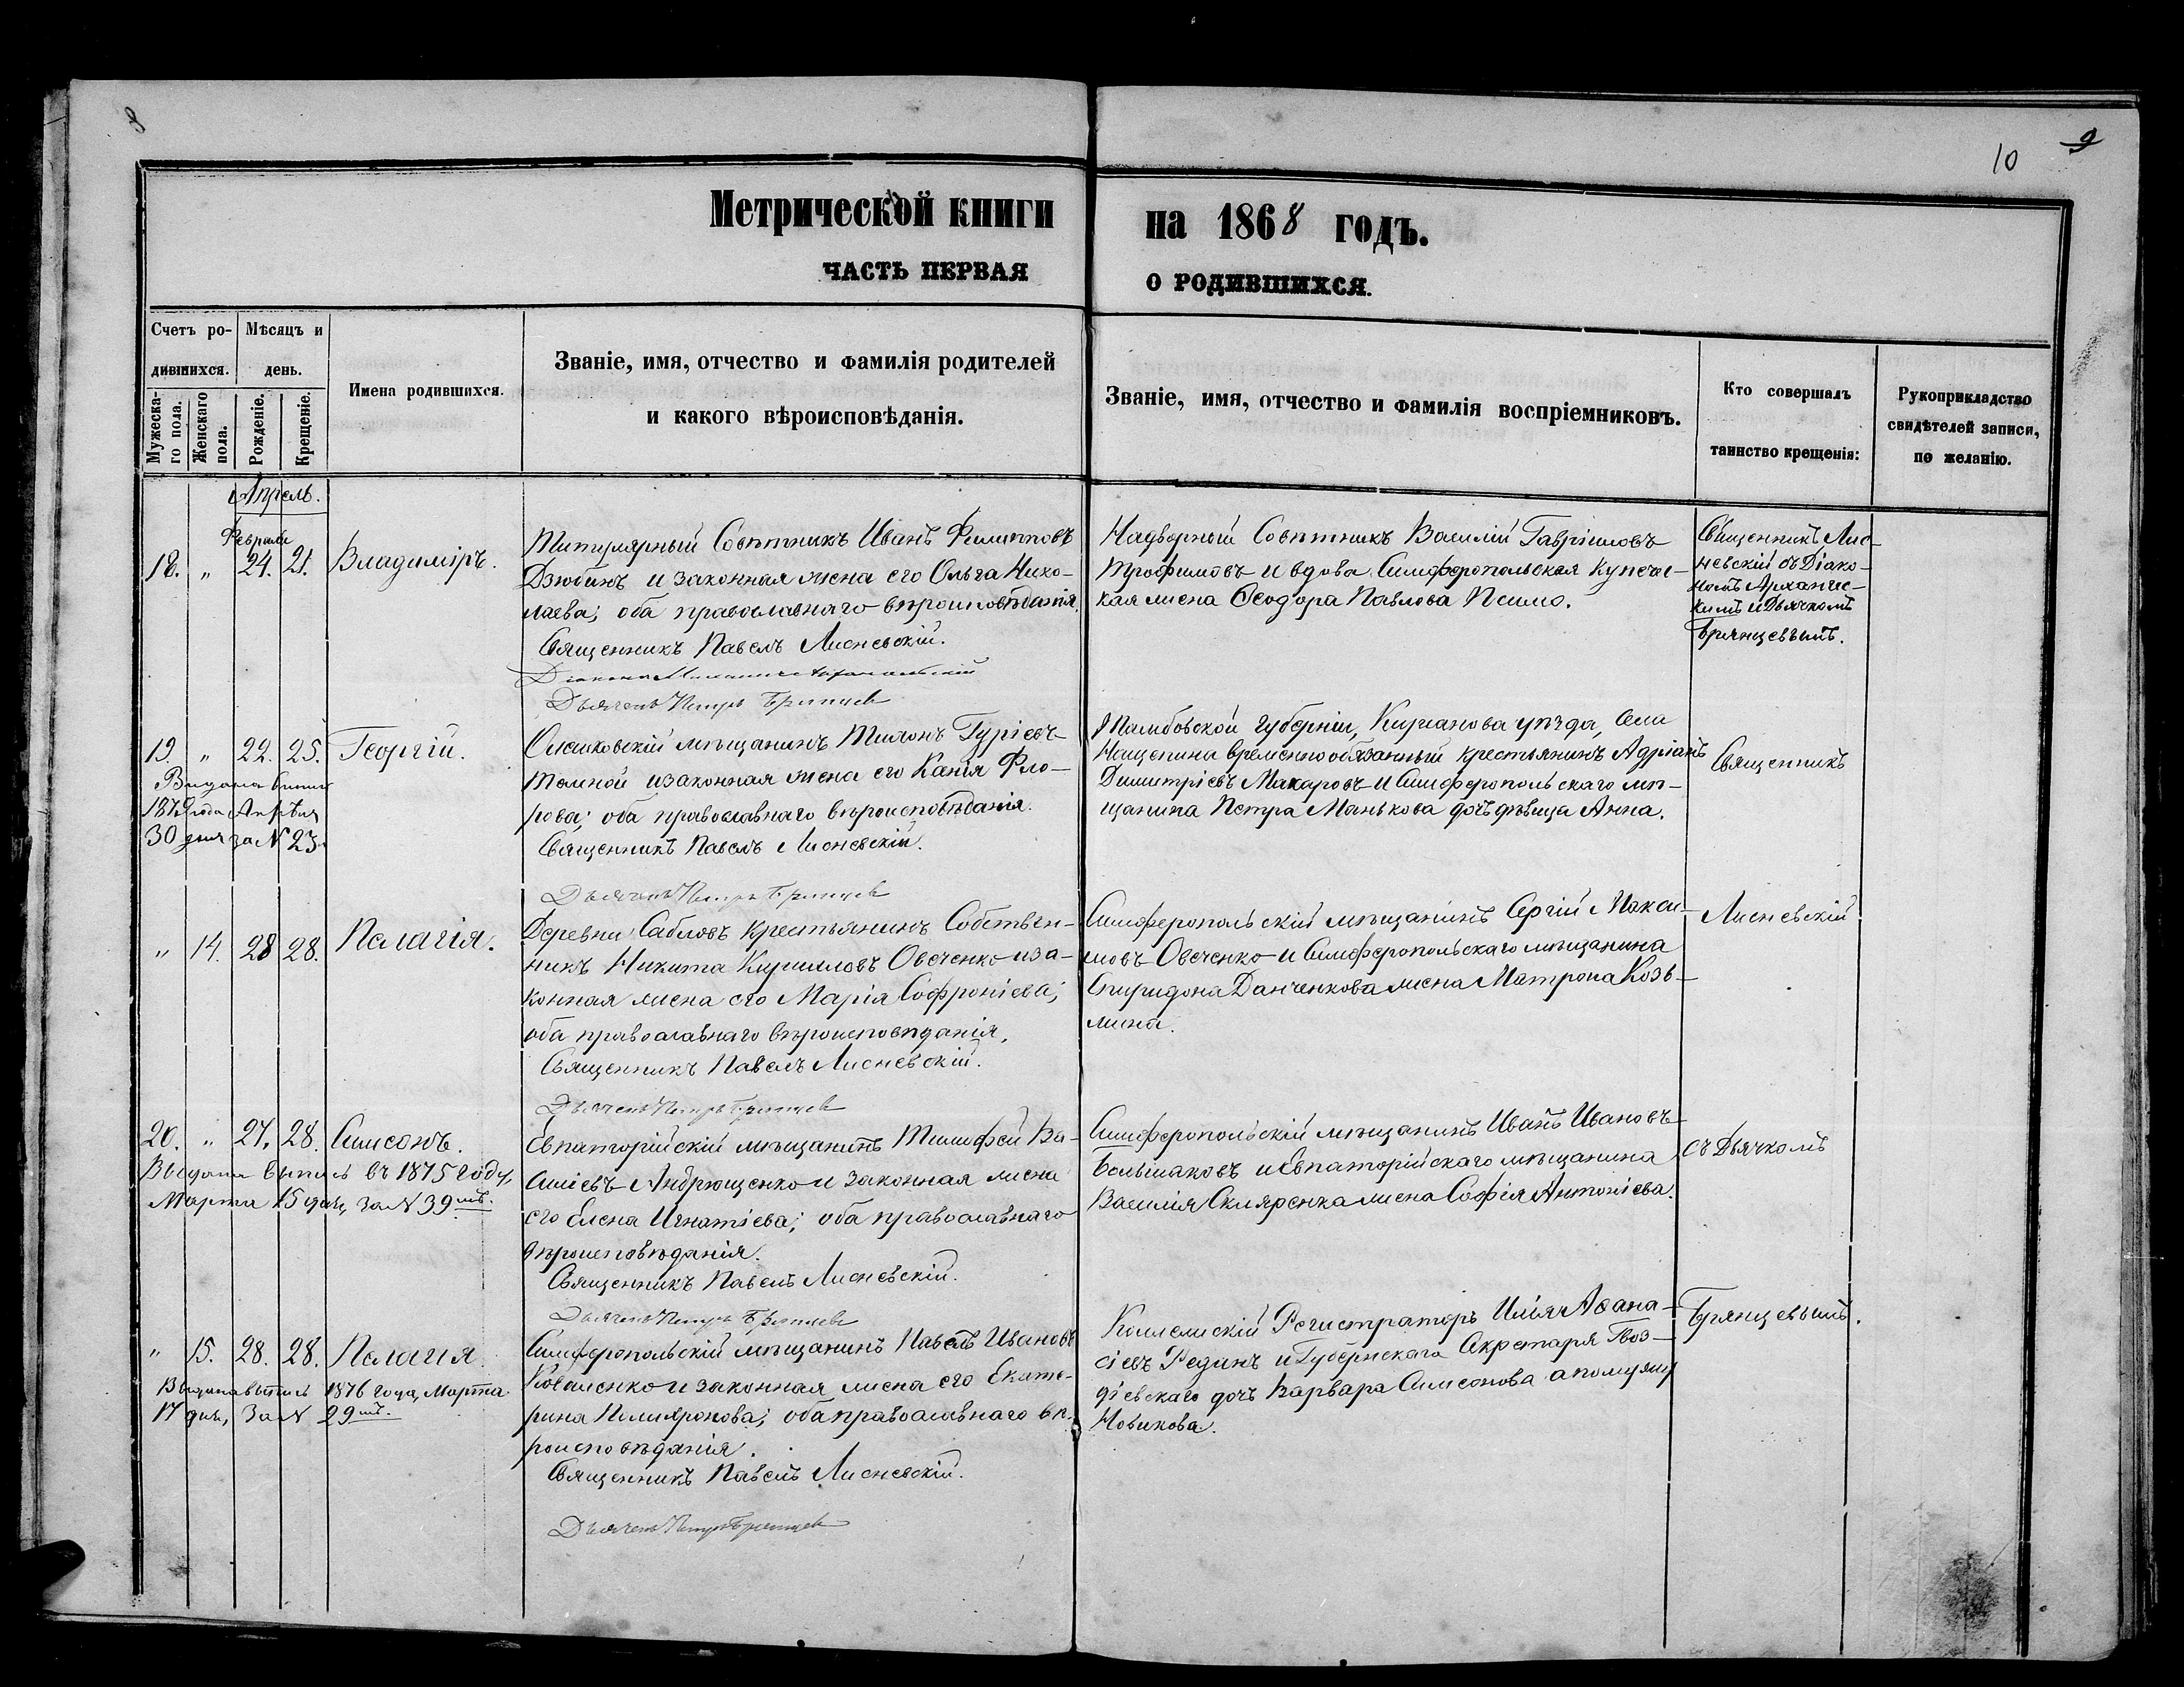 8
10 9
Метрической книги на 1868 годъ.
ЧАСТЬ ПЕРВАЯ О РОДИВШИХСЯ.
Счетъ ро-
дившихся.
Мужеска-
го пола.
Женскаго
пола.
Мѣсяцъ и
день.
Рожденіе.
Крещеніе.
Имена родившихся.
Званіе, имя, отчество и фамилія родителей
и какого вѣроисповѣданія.
Званіе, имя, отчество и фамилія воспріемниковъ.
Кто совершалъ
таинство крещенія:
Рукоприкладство
свидѣтелей записи,
по желанію.
Апрель.
Февраля
18. " 24. 21. Владиміръ.
Титулярный Совѣтникъ Иванъ Филипповъ
Дзюбинъ и законная жена его Ольга Нико-
лаева; оба православнаго вѣроисповѣданія.
Священникъ Павелъ Лисневскій.
Діаконъ
Дьячекъ Петръ Брянцев
Надворный Совѣтникъ Василій Гавріиловъ
Трофимовъ и вдова Симферопольская купечес-
кая жена Ѳеодора Павлова
Священникъ Лис-
невскій съ Діако-
номъ Архангес-
кимъ и Дьячкомъ
Брянцевымъ.
19. " 22. 25. Георгій.
Выдана выпись
187 года Апрѣля
30 дня за № 23
мѣщанинъ Гуріевъ
Томной и законная жена его Фло-
рова; оба православнаго вѣроисповѣданія.
Священникъ Павелъ Лисневскій.
Дьячекъ Петръ Брянцев
Тамбовской губерніи, Кирсанова уѣзда, села
Нащекина временно обязанный крестьянинъ Адріанъ
Димитріевъ Макаровъ и Симферопольскаго мѣ-
щанина Петра Манькова дочь дѣвица Анна.
Священникъ
" 14. 28 28. Пелагія.
Деревни Сабловъ крестьянинъ Собствен-
никъ Никита Кирилловъ Овеченко и за-
конная жена его Марія Софроніева;
оба православнаго вѣроисповѣданія,
Священникъ Павелъ Лисневскій.
Дьячекъ Петръ Брянцев
Симферопольскій мѣщанинъ Сергій Макси-
мовъ Овеченко и Симферопольскаго мѣщанина
Спиридона Данченкова жена Матрона Козь-
мина.
Лисневскій
20. " 27. 28. Симеонъ.
Выдана выпись въ 1875 году,
Марта 15 дня, за № 39мъ.
Евпаторійскій мѣщанинъ Тимофей Ва-
силіевъ Андрющенко и законная жена
его Елена Игнатіева; оба православнаго
вѣроисповѣданія.
Священникъ Павелъ Лисневскій.
Дьячекъ Петръ Брянцев
Симферопольскій мѣщанинъ Иванъ Ивановъ
Большаковъ и Евпаторійскаго мѣщанина
Василія Скляренка жена Софія Антоніева.
съ Дьячкомъ
" 15. 28. 28. Пелагія.
Выдана выпись 1876 года, Марта
17 дня, за № 29мъ.
Симферопольскій мѣщанинъ Павелъ Ивановъ
Коваленко и законная жена его Екате-
рина ; оба православнаго вѣ-
роисповѣданія.
Священникъ Павелъ Лисневскій.
Дьячекъ Петръ Брянцев
Коллежскій Регистраторъ Илія Аѳана-
сіевъ Рединъ и Губернскаго Секретаря Гвоз-
діевскаго дочь Варвара Симеонова а по мужу
Новикова.
Брянцевымъ.